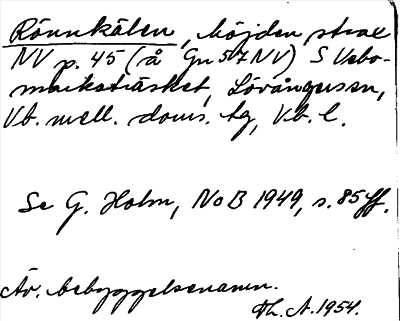 Rönnkälen, höjden strax
NV p. 45 (å Gn 57 NV) S Vebo-
markstråsket, Lövångerssn,
Vb. mell. doms. tg, Vb. l.
Se G. Holm, NoB 1949, s. 85 ff.
Äv. bebyggelsenamn.
Th. A. 1954.